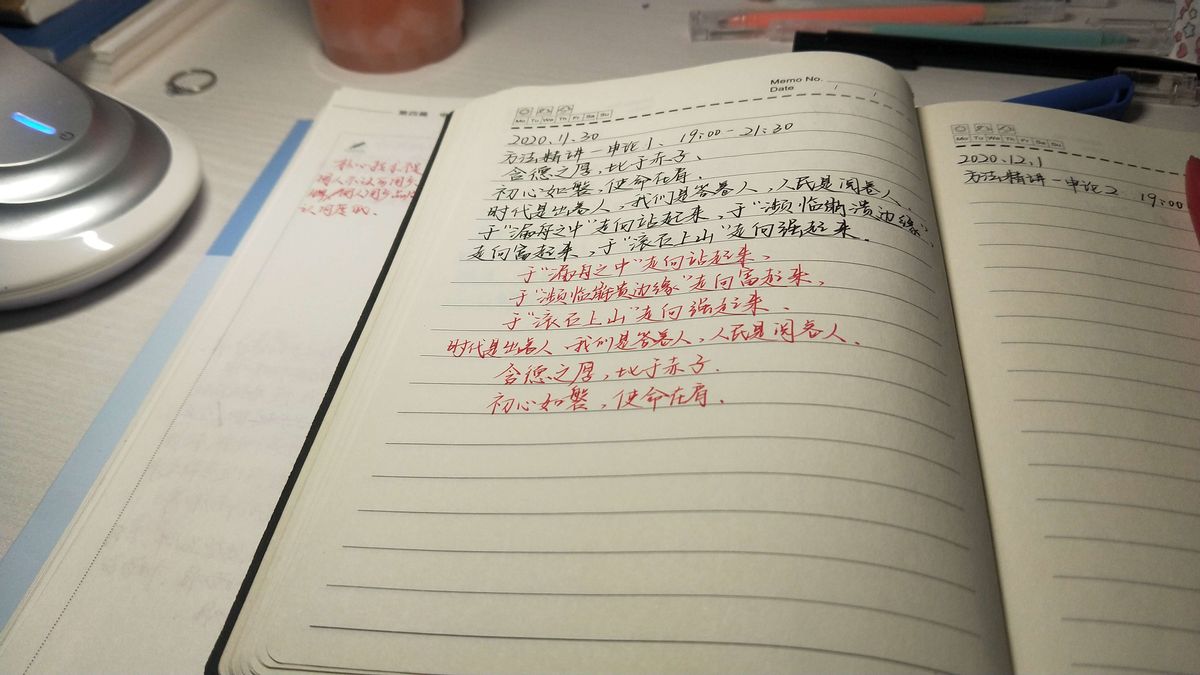 第四篇
Memo No.
Date / /
Mo Tu We Th Fr Sa Su
2020.11.30
方法精讲-申论1、19:00-21:30
含德之厚,比于赤子、
初心如磐,使命在肩、
时代是出卷人,我们是答卷人,人民是阅卷人、
于“漏舟之中”走向站起来,于“濒临崩溃边缘”、
走向富起来,于“滚石上山”走向强起来.
于“漏舟之中”走向站起来、
于“濒临崩溃边缘”走向富起来、
于“滚石上山”走向强起来、
时代是出卷人、我们是答卷人,人民是阅卷人、
含德之厚,比于赤子.
初心如磐,使命在肩.
Mo Tu We Th Fr Sa Su
2020.12.1
方法精讲-申论2
19:00